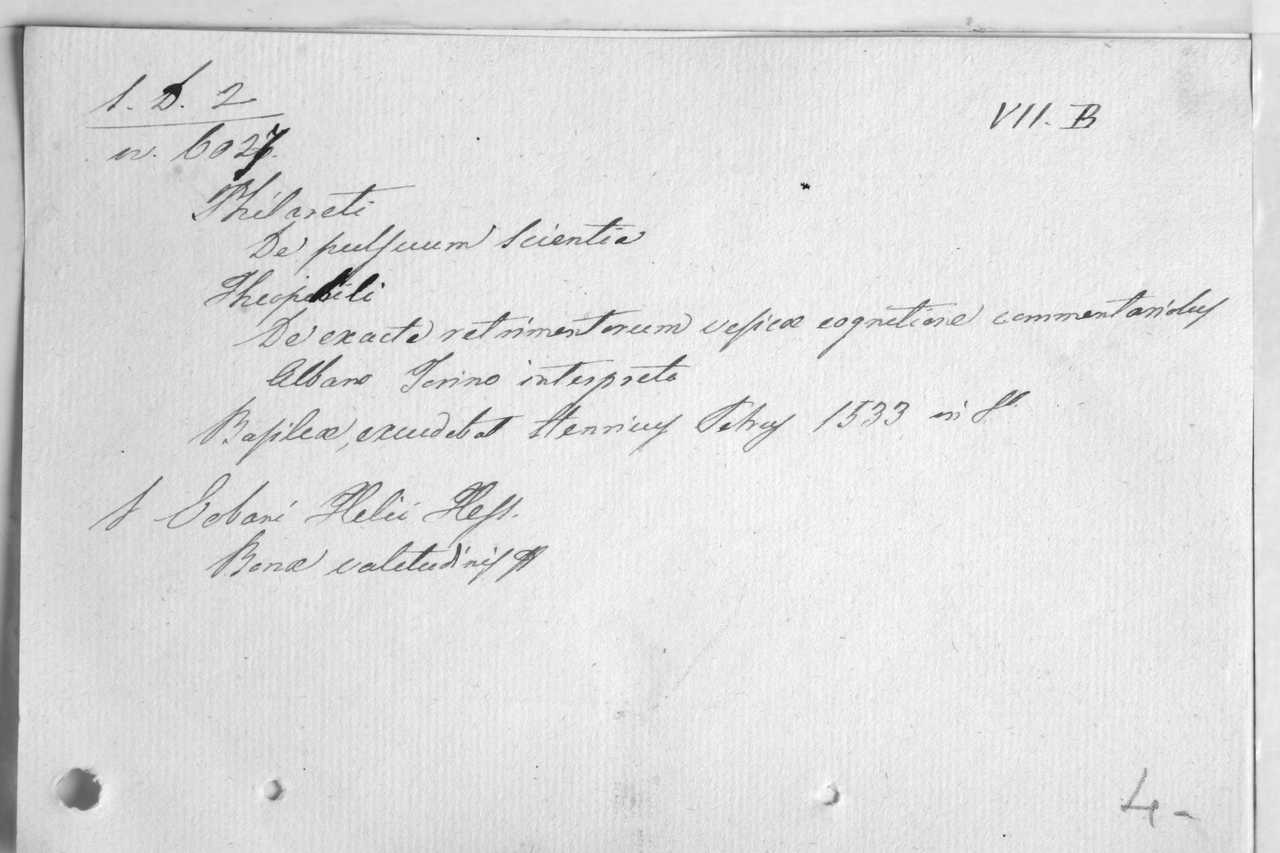 1. D. 2
VII. B
n. 6027.
Philareti
De pulsuum Scientia
Theophili
De exacta retrimentorum vesicæ cognitione commentariolus
Albano Torino interprete
Basileæ, excudebat Henricus Petrus 1533 in 8°.
Eobani Helii Hess.
Bonæ valetudinis
4-